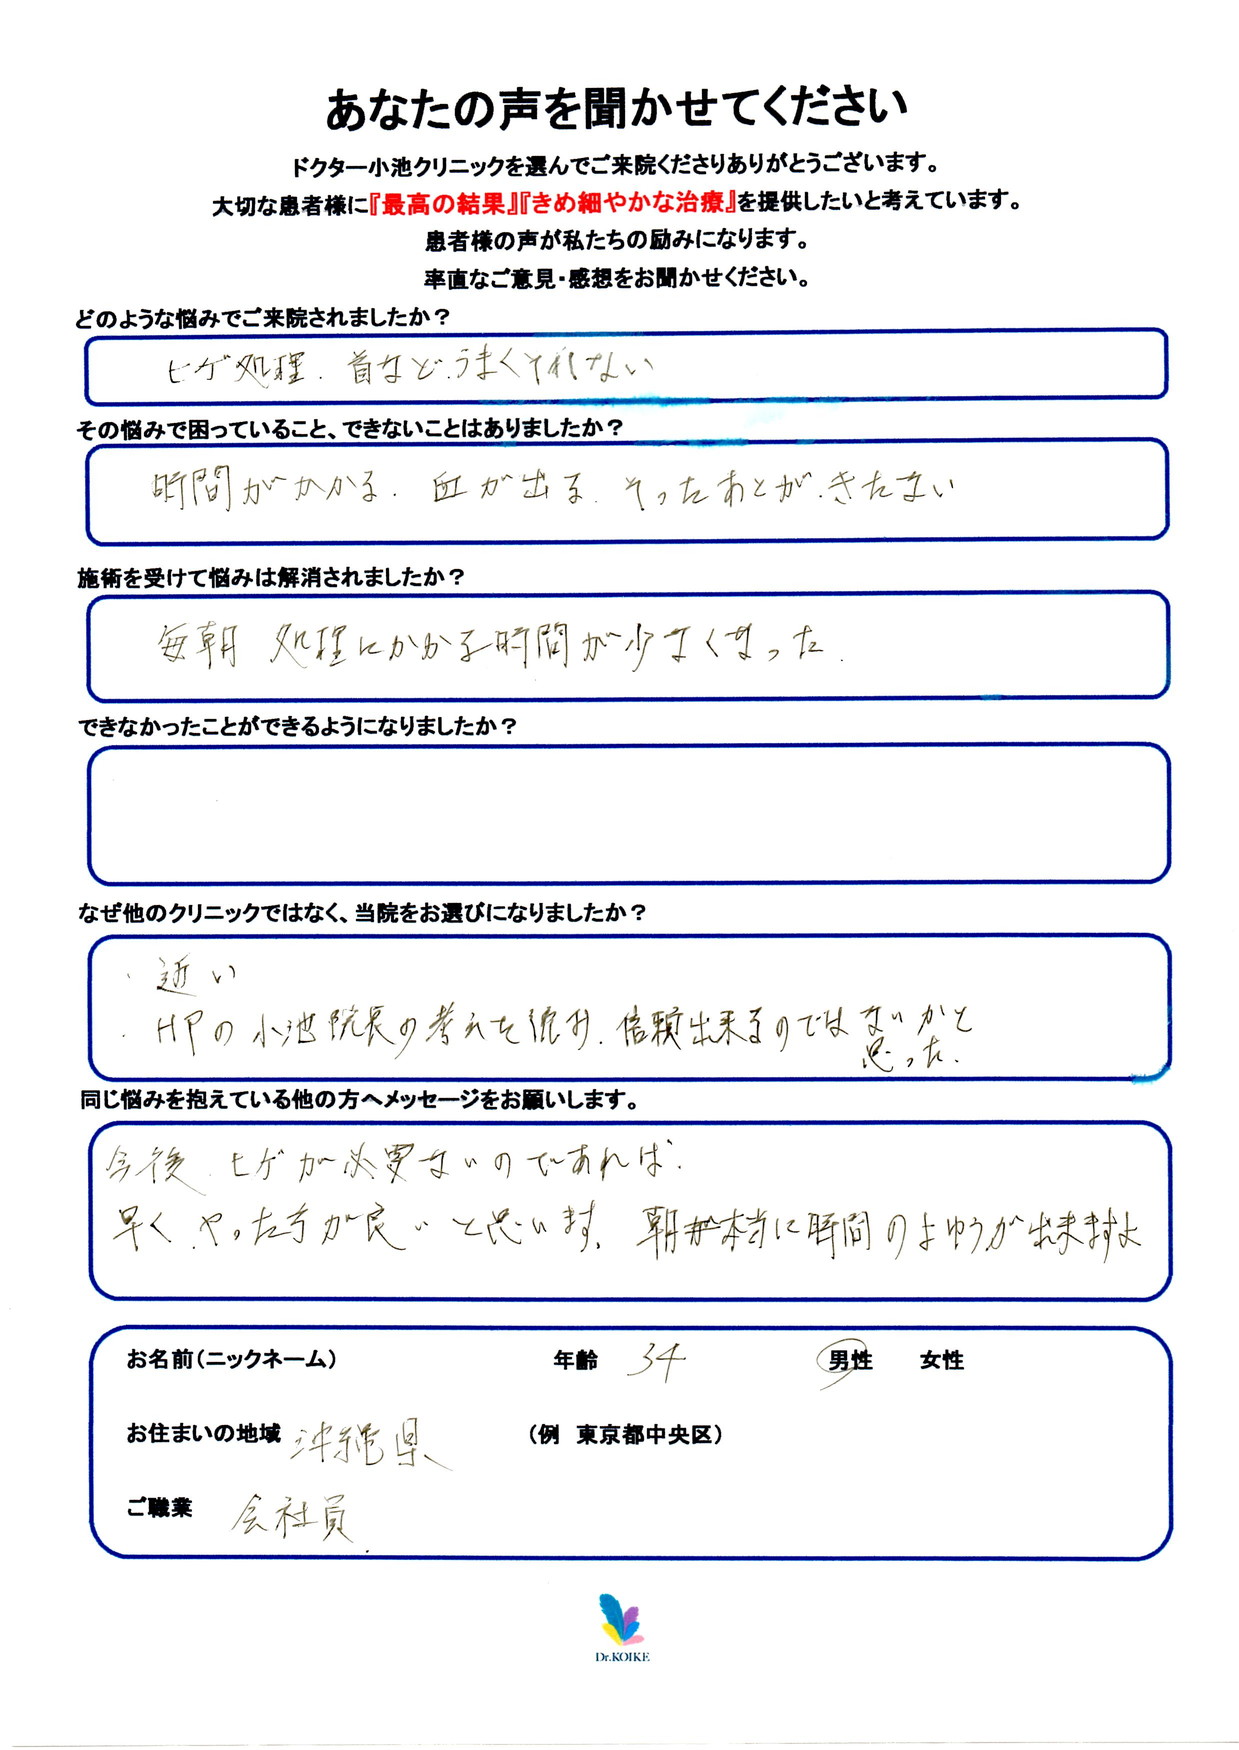 あなたの声を聞かせてください
ドクター小池クリニックを選んでご来院くださりありがとうございます。
大切な患者様に『最高の結果』『きめ細やかな治療』を提供したいと考えています。
患者様の声が私たちの励みになります。
率直なご意見・感想をお聞かせください。
どのような悩みでご来院されましたか？
ヒゲ処理．首など．うまくそれない
その悩みで困っていること、できないことはありましたか？
時間がかかる．血が出る．そったあとが．きたない
施術を受けて悩みは解消されましたか？
毎朝 処理にかかる時間が少なくなった．
できなかったことができるようになりましたか？
なぜ他のクリニックではなく、当院をお選びになりましたか？
・近い
・HPの小池院長の考えを読み．信頼出来るのではないかと
思った．
同じ悩みを抱えている他の方へメッセージをお願いします。
今後．ヒゲが必要ないのであれば．
早く．やった方が良いと思います。朝が本当に時間のよゆうが出来ますよ
お名前（ニックネーム） 年齢 34 男性 女性
お住まいの地域 沖縄県 （例 東京都中央区）
ご職業 会社員．
Dr.KOIKE